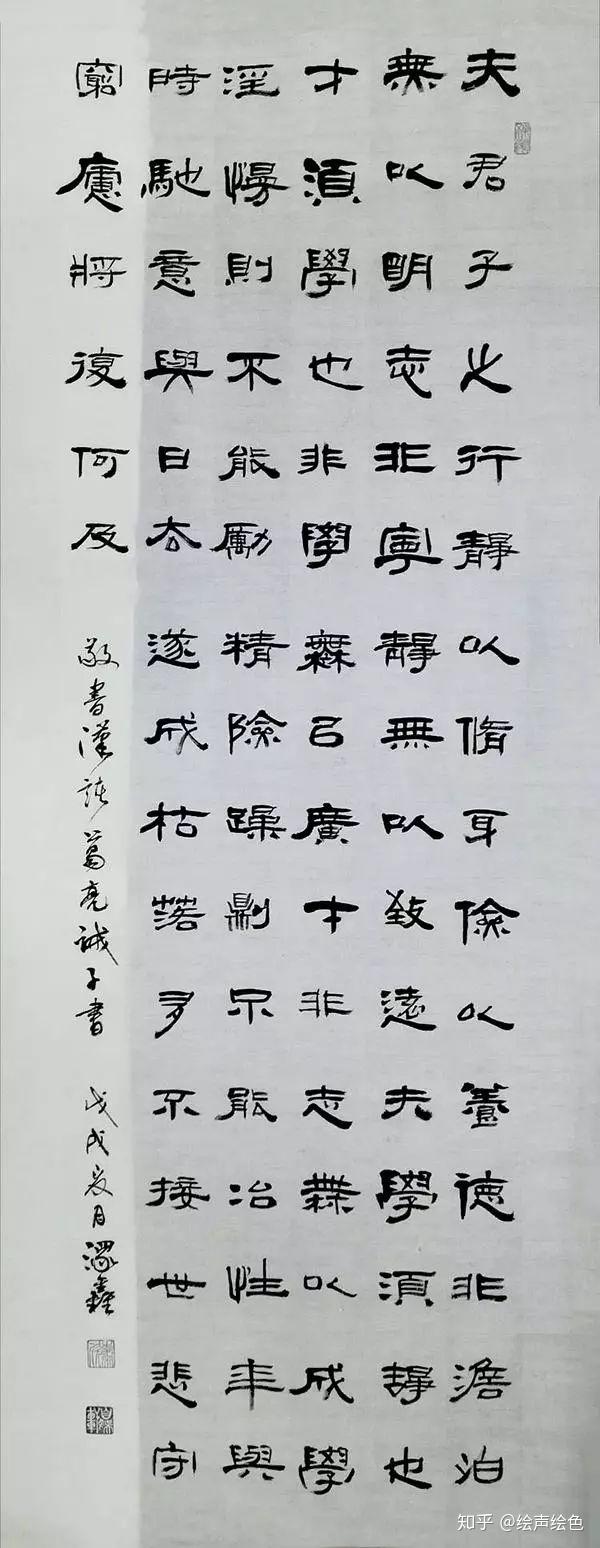 夫君子之行靜以脩身儉以養德非澹泊
無以明志非寧靜無以致遠夫學須靜也
才須學也非學無以廣才非志無以成學
淫慢則不能勵精險躁則不能冶性年與
時馳意與日去遂成枯落多不接世悲守
窮廬將復何及
敬書漢諸葛亮誡子書 戊戌夏月
知乎 @绘声绘色